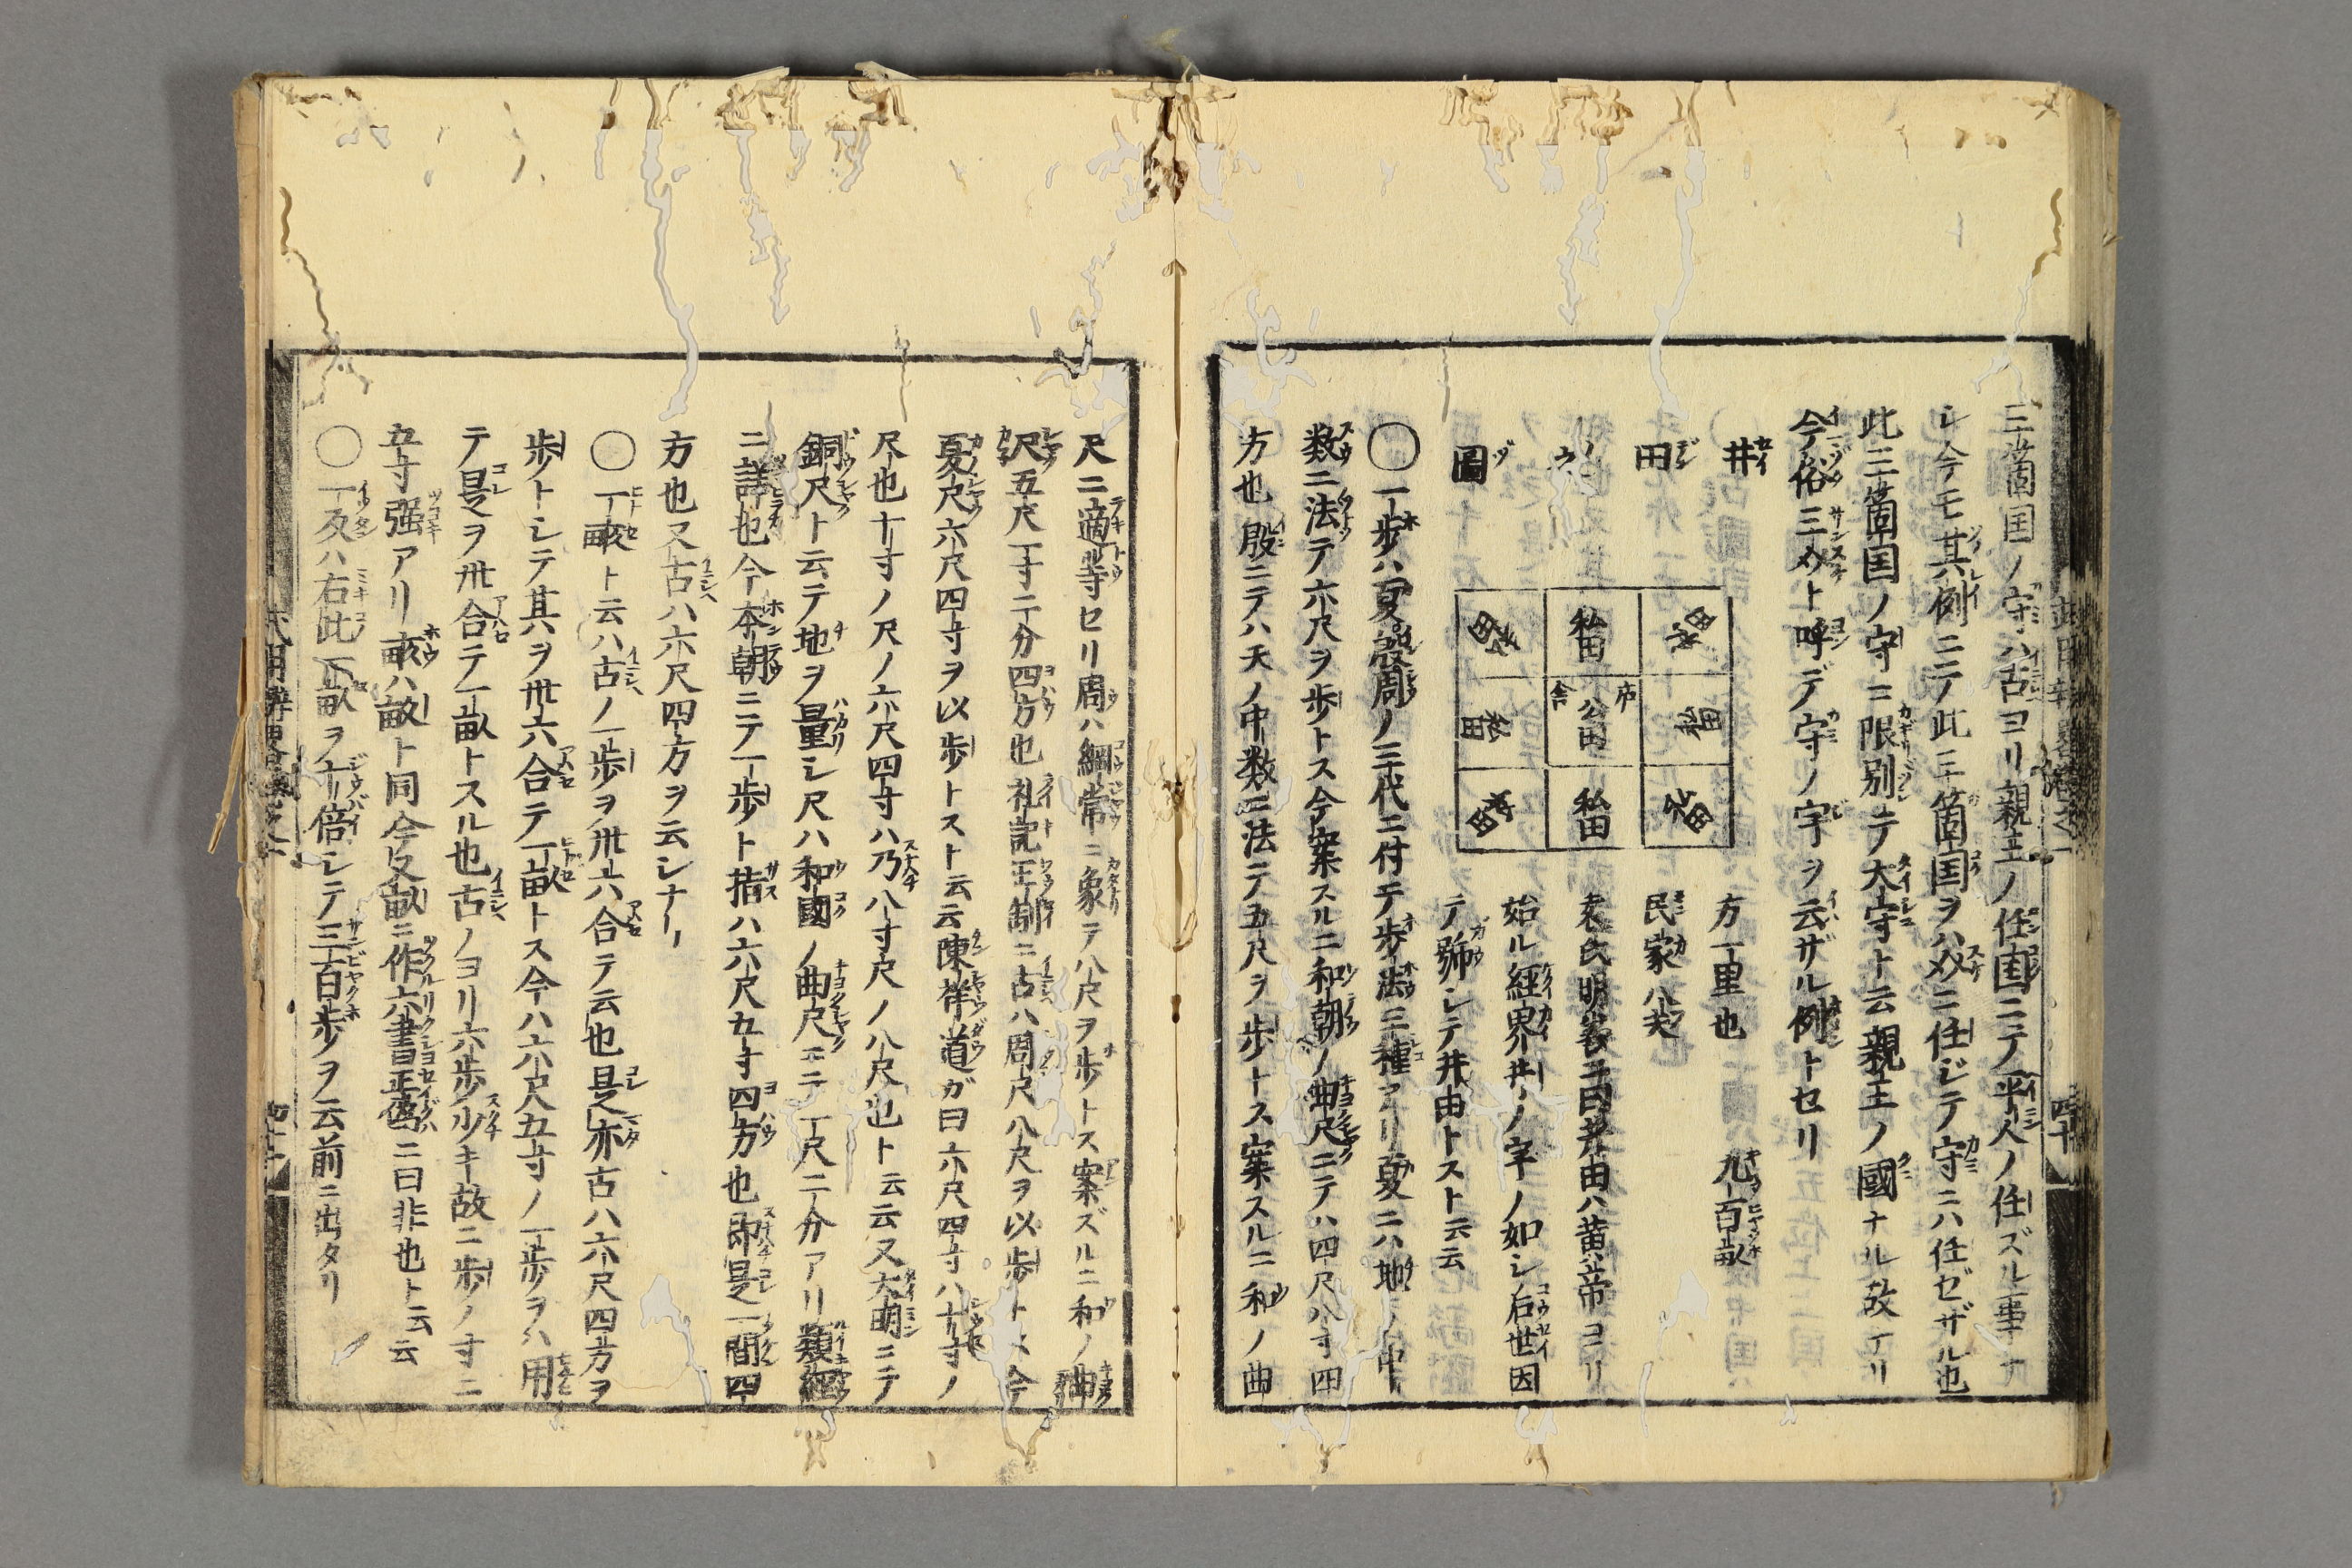 三箇国ノ守ハ古ヨリ親王ノ任国ニテ平人ノ任ズル事ナ
シ今モ其例ニテ此三箇国ヲハ㐧ニ任ジテ守ニハ任ゼザル也
此三箇国ノ守ニ限別テ大守ト云親王ノ國ナル故ナリ
今俗三㐧ト呼デ守ノ字ヲ云ザル例トセリ
井田ノ圖
私田 私田 私田
私田 公田 私田
私田 私田 私田
庐舎
方一里也 九百畝
民家八夫
袁氏明善ニ曰井由ハ黄帝ヨリ
始ル經界井ノ字ノ如シ后世因
テ號シテ井由トスト云云
〇一歩ハ夏殷周ノ三代ニ付テ歩法三種アリ夏ニハ地ノ中
数ニ法テ六尺ヲ歩トス今案スルニ和朝ノ曲尺ニテハ四尺八寸四
方也殷ニテハ天ノ中数ニ法テ五尺ヲ歩トス案スルニ和ノ曲
尺ニ適等セリ周ハ綱常ニ象テ八尺ヲ歩トス案ズルニ和ノ曲
尺五尺一寸二分四方也礼記王制ニ古ハ周尺八尺ヲ以歩トス今
夏尺六尺四寸ヲ以歩トスト云云陳祥道ガ曰六尺四寸ハ十寸ノ
尺也十寸ノ尺ノ六尺四寸ハ乃八寸尺ノ八尺也ト云云又大明ニテ
銅尺ト云テ地ヲ量シ尺ハ和國ノ曲尺ニテ一尺二分アリ類經
ニ詳也今本朝ニテ一歩ト指ハ六尺五寸四方也即是一間四
方也又古ハ六尺四方ヲ云シナリ
〇一畝ト云ハ古ノ一歩ヲ卅六合テ云也是亦古ハ六尺四方ヲ
歩トシテ其ヲ卅六合テ一畝トス今ハ六尺五寸ノ一歩ヲハ用
テ是ヲ卅合テ一畝トスル也古ノヨリ六歩少キ故ニ歩ノ寸ニ
五寸强アリ畝ハ畝ト同今反畝ニ作六書正譌ニ曰非也ト云云
〇一反ハ右此一畝ヲ十倍シテ三百歩ヲ云前ニ出タリ